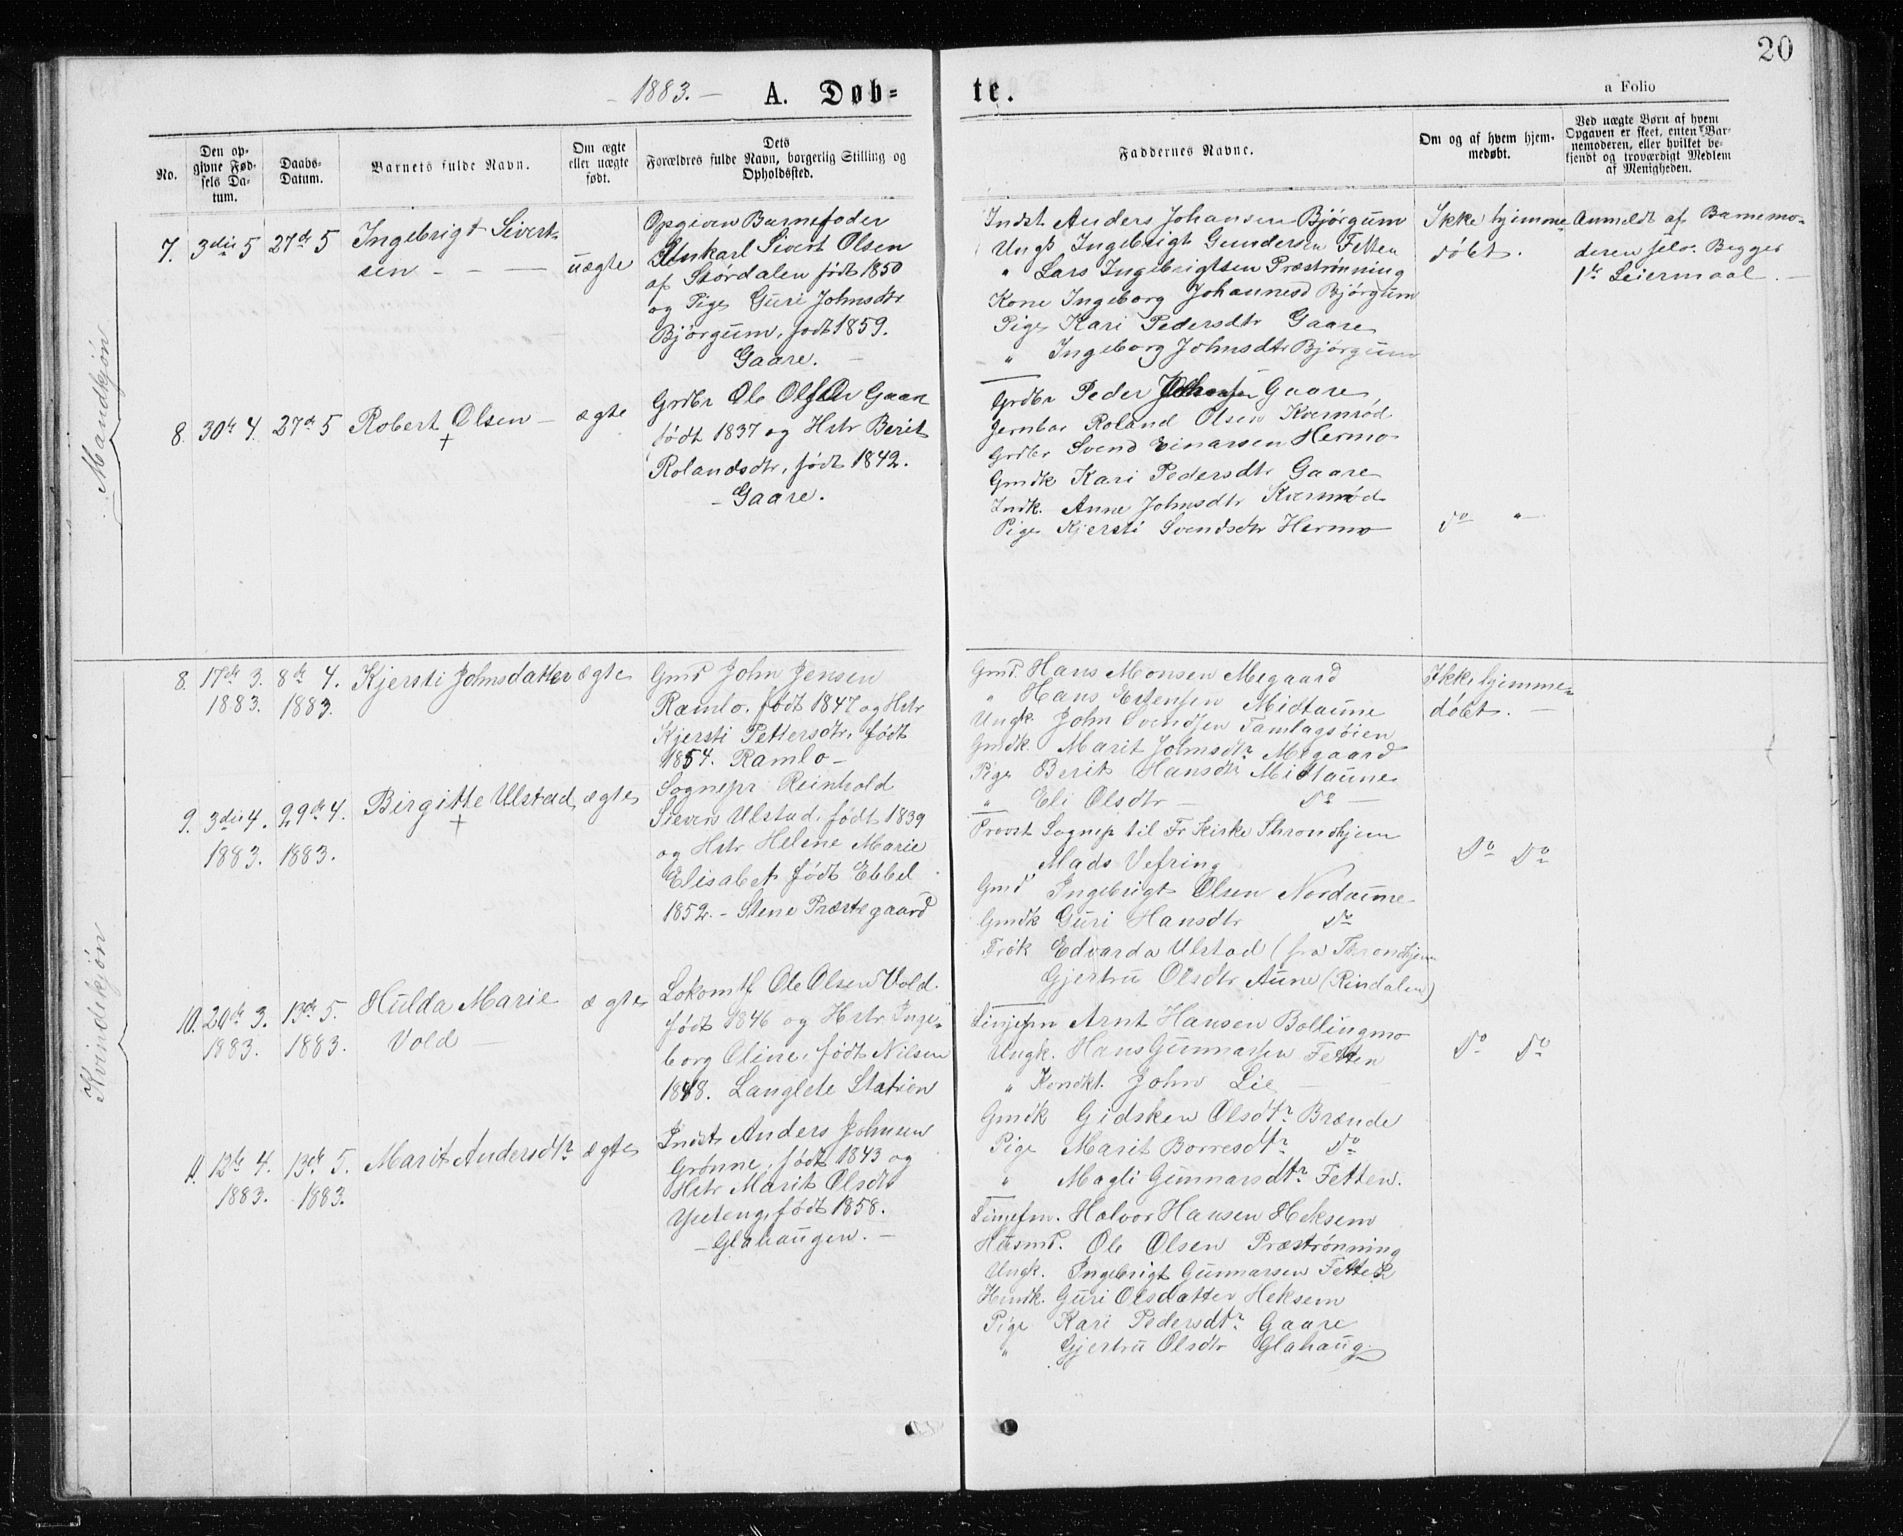 20
- 1883. - A. Døb= te. a Folio
No.
Den op-
givne Fød-
sels Da-
tum.
Daabs-
Datum.
Barnets fulde Navn.
Om ægte
eller uægte
født.
Dets
Forældres fulde Navn, borgerlig Stilling og
Opholdssted.
Faddernes Navne.
Om og af hvem hjem-
medøbt.
Ved uægte Børn af hvem
Opgaven er skeet, enten Bar-
nemoderen, eller hvilket be-
kjendt og troværdigt Medlem
af Menigheden.
Mandkjøn
7. 3die 5 27de 5 Ingebrigt Sivert-
sen - - -
uægte
Opgiven Barnefader
Sivert Olsen
af Stördalen født 1850
og Pige Guri Johnsdtr
Bjørgum, født 1859.
Gaare. -
Indst Anders Johansen Bjørgum
Ungk Ingebrigt Gundersen Fetten
" Lars Ingebrigtsen Præstrønning
Kone Ingeborg Johannesd Bjørgum
Pige Kari Pedersdtr Gaare
" Ingeborg Johnsdtr Bjørgum
Ikke hjemme
døbt.
Anmeldt af Barnemo-
deren selv. Begges
1ste Leiermaal. -
8. 30te 4. 27de 5 Robert Olsen - ægte
+
Grdbr Ole Olsen Gaare
født 1837 og Hstr Berit
Rolandsdtr, født 1842.
- Gaare.
Grdbr Peder Gaare
Jernbar Roland Olsen Kvernrød
Grdbr Svend Einarsen Hermo
Gmdk Kari Pedersdtr Gaare
Indk. Anne Johnsdtr Kvernrød
Pige Kjersti Svendsdtr Hermo
do "
Kvindekjøn
8. 17de 3. 8de 4. Kjersti Johnsdatter ægte
1883. 1883.
Gmd John Jensen
Ramlo, født 1847 og Hstr
Kjersti Pettersdtr, født
1854. Ramlo -
Gmd. Hans Monsen Megaard
" Hans Estensen Midtaune
Ungk John Svendsen Tamlagsøien
Gmdk Marit Johnsdtr Megaard
Pige Berit Hansdtr Midtaune
" Eli Olsdtr - do -
Ikke hjemme
døbt. -
9. 3die 4. 29de 4. Birgitte Ulstad, ægte
+
1883. 1883.
Sognepr Reinhold
Sievers Ulstad, født 1839
og Hstr Helene Marie
Elisabet født Ebbel
1852. - Stene Præstegaard
Provst Sognep til Fr Kirke Throndhjem
Mads Vefring
Gmd Ingebrigt Olsen Nordaune
Gmdk Guri Hansdtr do
Frøk Edvarda Ulstad (fra Throndhjem
Gjertru Olsdtr Aune (Rindalen)
do do
10. 20de 3. 13de 5. Hulda Marie ægte
1883. 1883. Vold -
Lokomtf Ole Olsen Vold
født 1846 og Hstr Inge-
borg Oline, født Nilsen
1848. Langlete Station
Linjefm Arnt Hansen Bollingmo
Ungk. Hans Gunnarsen Fetten
" Kondkt. John Lie -
Gmdk Gidsken Olsdtr Brænde
Pige Marit Borresdtr do
" Magli Gunnarsdtr Fetten.
do do
11. 12te 4. 13de 5. Marit Andersdtr ægte
1883. 1883.
Indst Anders Johnsen
Grønne, født 1843 og
Hstr Marit Olsdtr
født 1858.
- Glahaugen. -
Linjefm. Halvor Hansen Heksem
Husmd. Ole Olsen Præstrønning
Ungk. Ingebrigt Gunnarsen Fetten
Hmdk. Guri Olsdatter Heksem
Pige Kari Pedersdtr Gaare
" Gjertru Olsdtr Glahaug